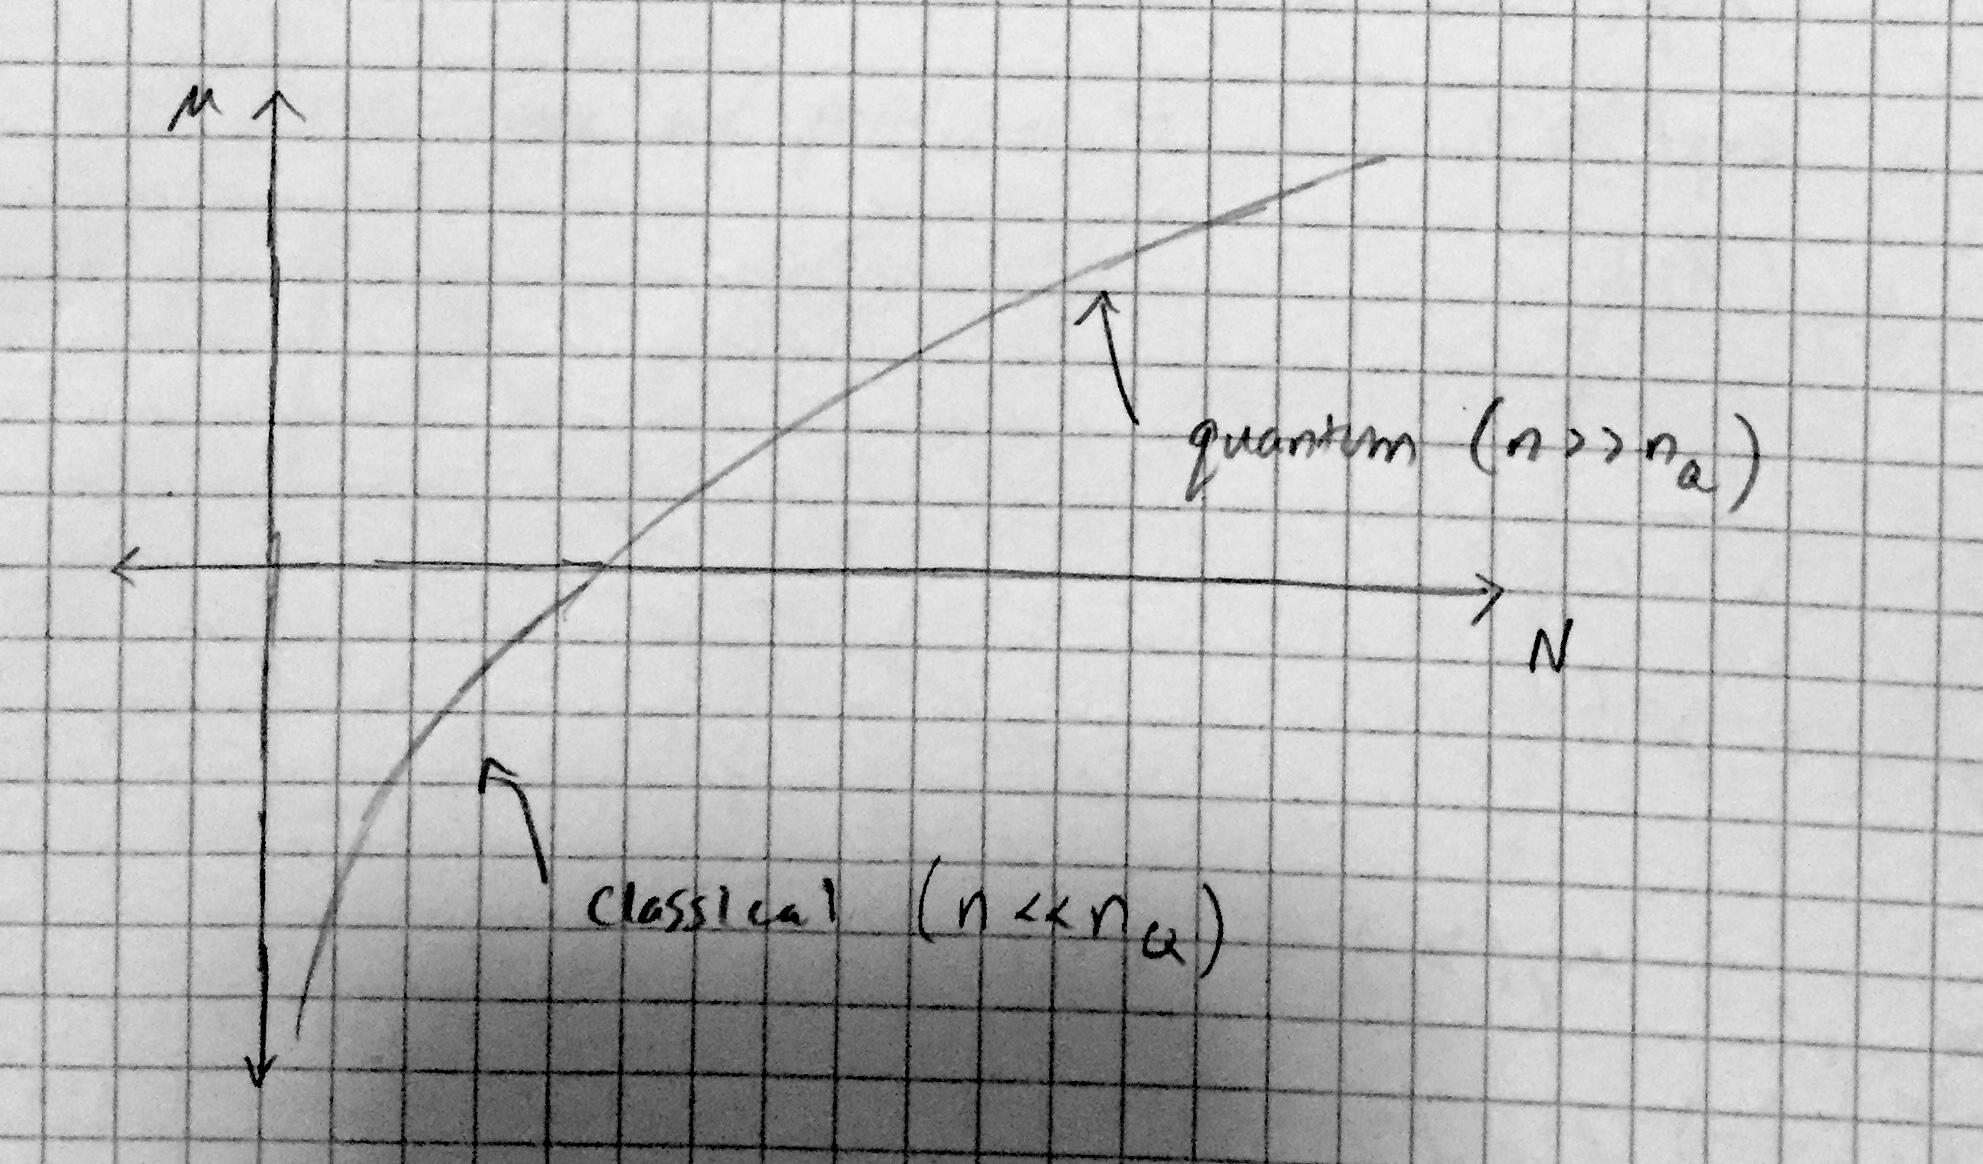 μ
quantum (n>>n_Q)
N
classical (n<<n_Q)